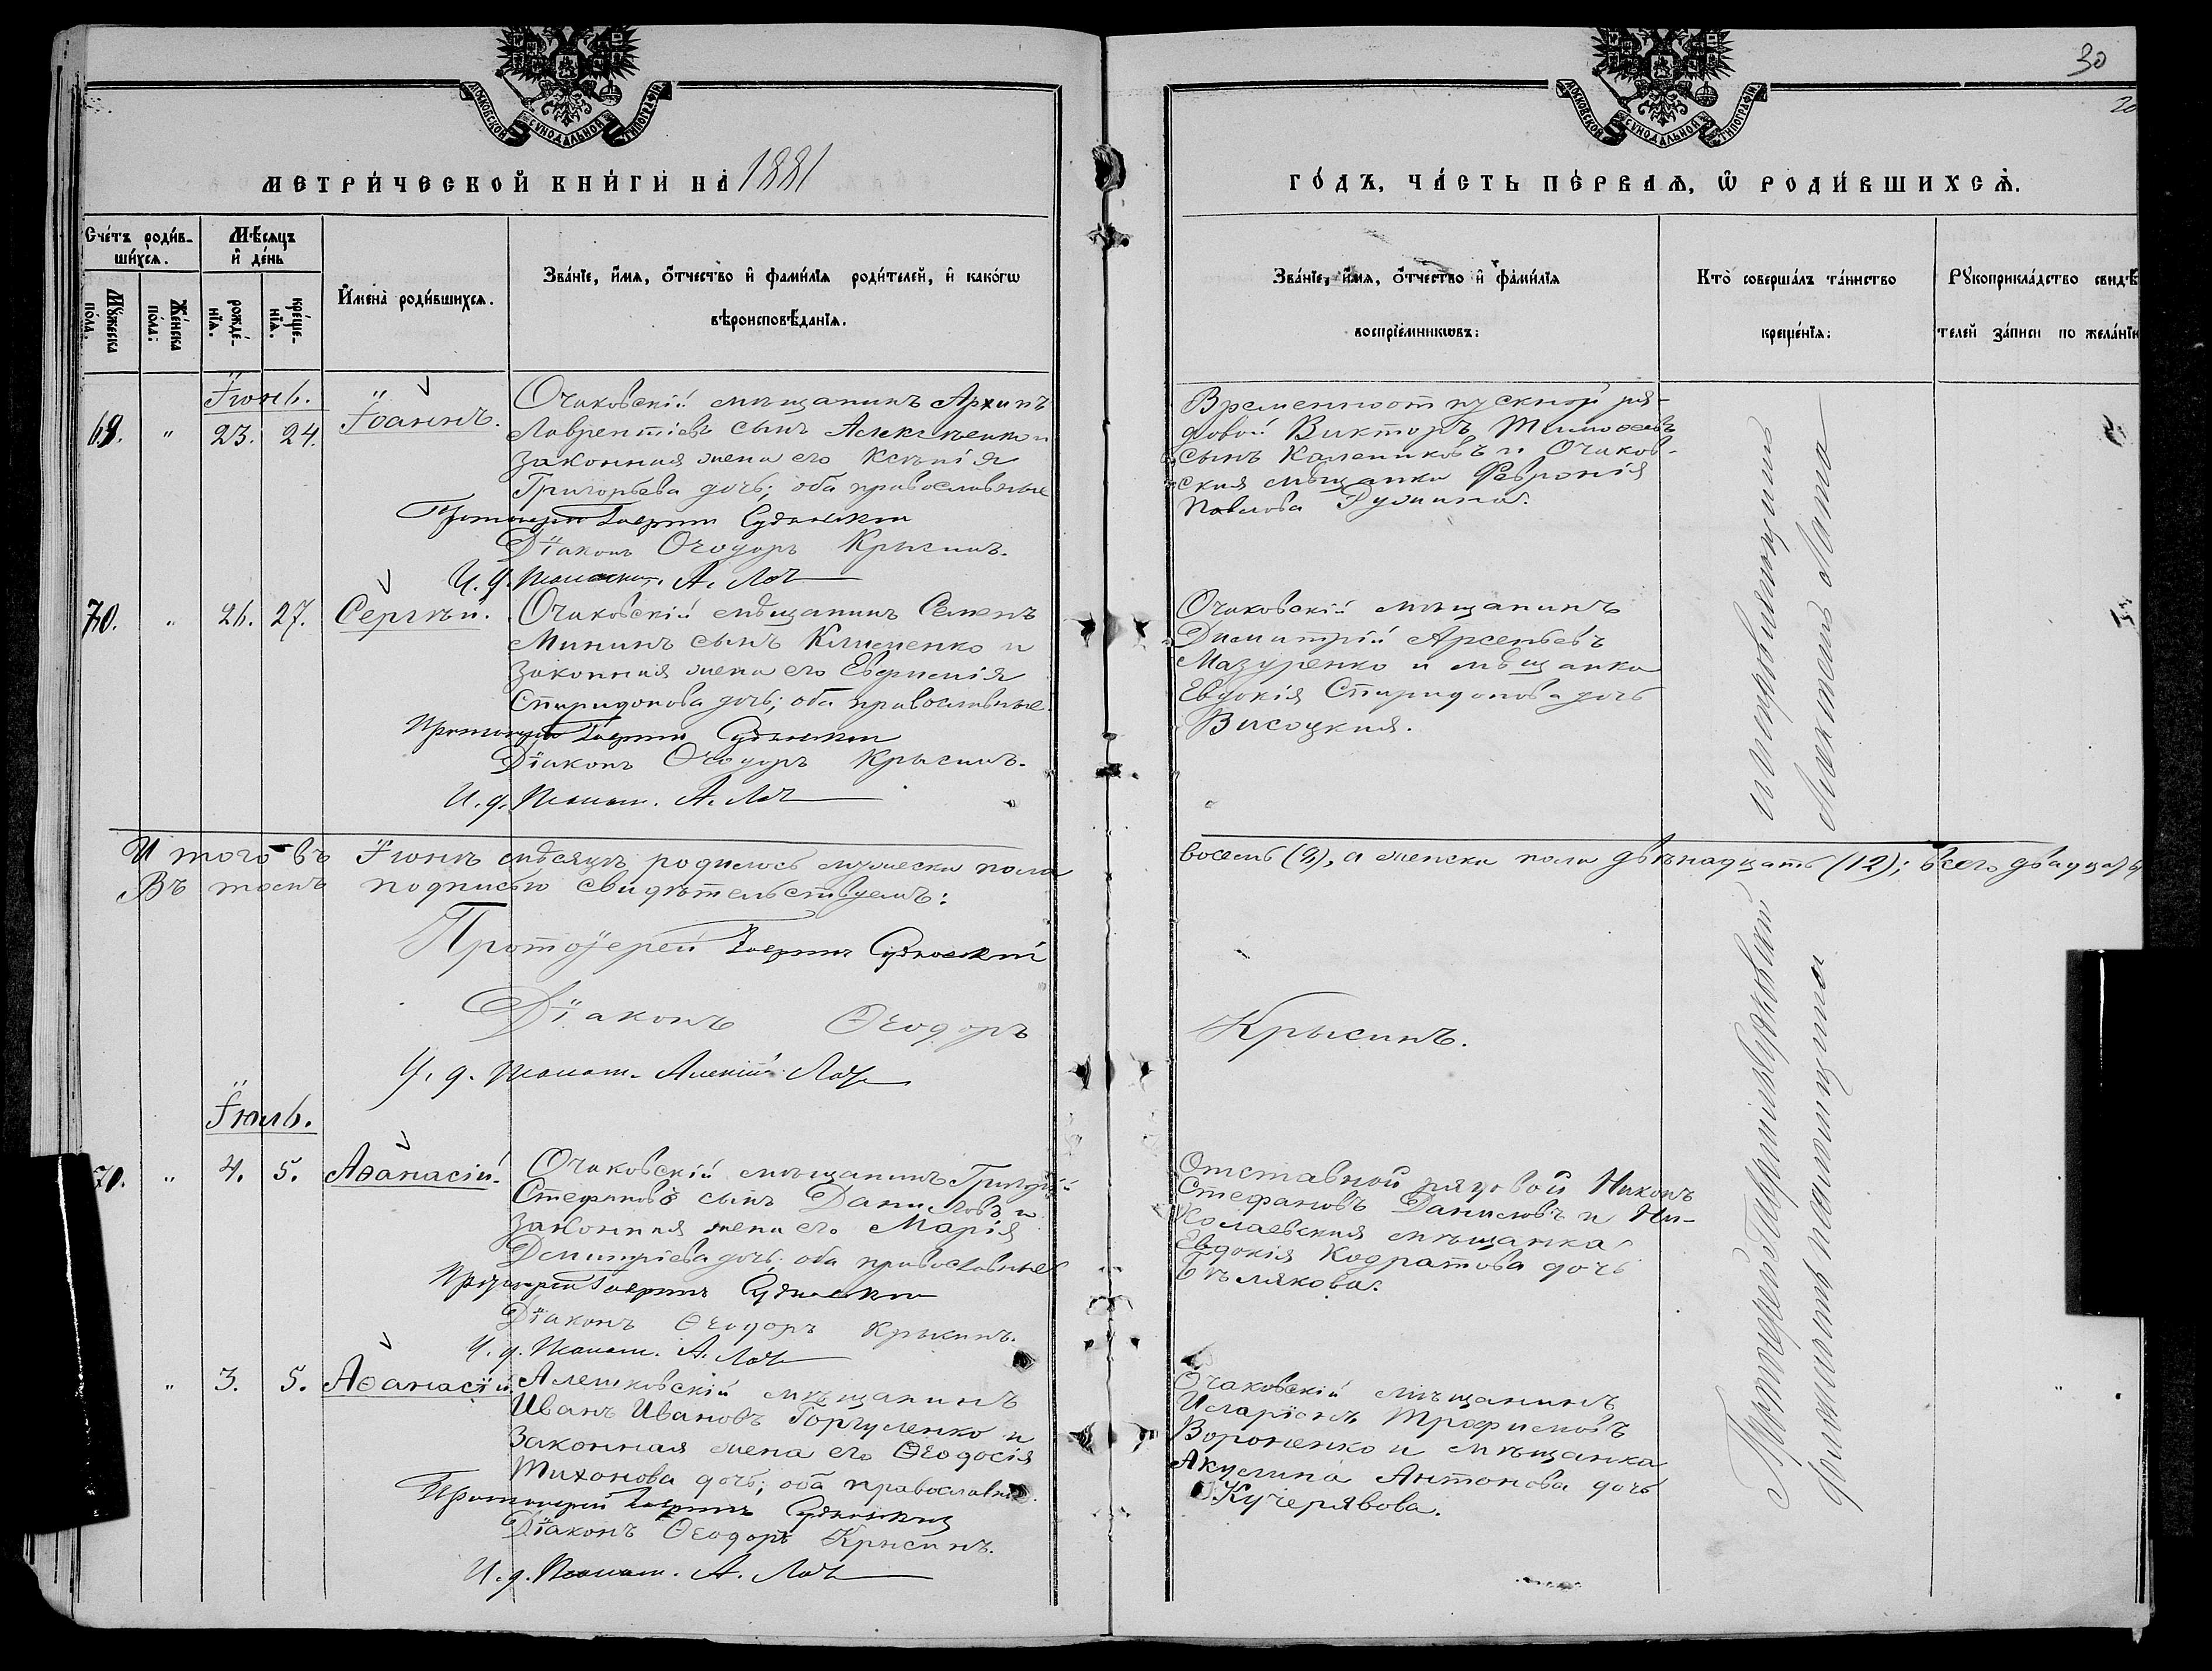 30
20
МОСКОВСКОЙ СѴНОДАЛЬНОЙ ТИПОГРАФІИ
МОСКОВСКОЙ СѴНОДАЛЬНОЙ ТИПОГРАФІИ
МЕТРИ́ЧЕСКОЙ КНИ́ГИ НА 1881
ГО́ДЪ, ЧА́СТЬ ПЕ́РВАЯ, Ѡ РОДИ́ВШИХСЯ.
Сче́тъ роди́в-
ши́хся.
Мѣ́сяцъ
и де́нь
Мꙋ́жеска
по́ла.
Же́нска
по́ла:
рожде́-
нїя.
креще́-
нїя.
И́мена роди́вшихся.
Зва́нїе, и́мя, о́тчество и фами́лїя роди́телей, и како́гѡ
вѣроисповѣ́данїя.
Зва́нїе, и́мя, о́тчество и фами́лїя
воспрїе́мникѡвъ:
Кто̀ соверша́лъ та́инство
креще́нїя:
Рꙋкоприкла́дство свидѣ́
телей за́писи по жела́нїю
Іюнь.
69. " 23. 24. Іоаннъ.
Очаковскій мѣщанинъ Архипъ
Лаврентіевъ сынъ Алексѣенко и
законная жена его Ксенія
Григорьева дочь; оба православные
Протоіерей Гавріилъ Судковскій
Діаконъ Ѳеодоръ Крысинъ.
И. д. Псаломщ. А. Лот
Временноотпускной ря-
довой Викторъ Тимоѳеевъ
сынъ Калениковъ и Очаков-
ская мѣщанка Февронія
Павлова
70. " 26. 27. Сергѣй.
Очаковскій мѣщанинъ Семенъ
Мининъ сынъ Клименко и
законная жена его Евфимія
Спиридонова дочь; оба православные.
Протоіерей Гавріилъ Судковскій
Діаконъ Ѳеодоръ Крысинъ.
И. д. Псалом. А. Лот
Очаковскій мѣщанинъ
Димитрій Арсеньевъ
Мазуренко и мѣщанка
Евдокія Спиридонова дочь
Висоцкая.
и исправляющимъ
Алексѣемъ Лота
Итого въ Іюнѣ мѣсяцѣ родилось мужеска пола
восемь (8), а женска пола двѣнадцать (12); всего двадцать
Въ томъ подписью свидѣтельствуемъ:
Протоіерей Гавріилъ Судковскій
Діаконъ Ѳеодоръ
Крысинъ.
И. д. Псалом. Алексій Лот
Іюль.
71. " 4. 5. Аѳанасій.
Очаковскій мѣщанинъ Григорій
Стефановъ сынъ Даниловъ и
законная жена его Марія
Димитріева дочь; оба православные
Протоіерей Гавріилъ Судковскій
Діаконъ Ѳеодоръ Крысинъ.
И. д. Псалом. А. Лот
Отставной рядовой Никонъ
Стефановъ Даниловъ и Ни-
колаевская мѣщанка
Евдокія Кодратова дочь
Бѣлякова.
" 3. 5. Аѳанасій.
Алешковскій мѣщанинъ
Иванъ Ивановъ Горгуленко и
законная жена его Ѳеодосія
Тихонова дочь; оба православные.
Протоіерей Гавріилъ Судковскій
Діаконъ Ѳеодоръ Крысинъ.
И. д. Псалом. А. Лот
Очаковскій мѣщанинъ
Иларіонъ Трофимовъ
Вороненко и мѣщанка
Акулина Антонова дочь
Кучерявова.
Протоіерей Гавріилъ Судковскій
должность псаломщика